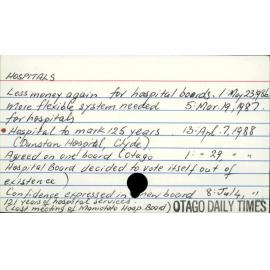 HOSPITALS
Less money again for hospital boards. 1. May 23, 1986
More flexible system needed 5. Mar. 19, 1987.
for hospitals
• Hospital to mark 125 years. 13. Apl. 7, 1988
(Dunstan Hospital, Clyde)
Agreed on one board (Otago 1. " 29, " "
Hospital Board decided to vote itself out of
existence)
Confidence expressed in new board 8. July, "
121 years of hospital services.
(Last meeting of Maniototo Hosp. Board)
OTAGO DAILY TIMES